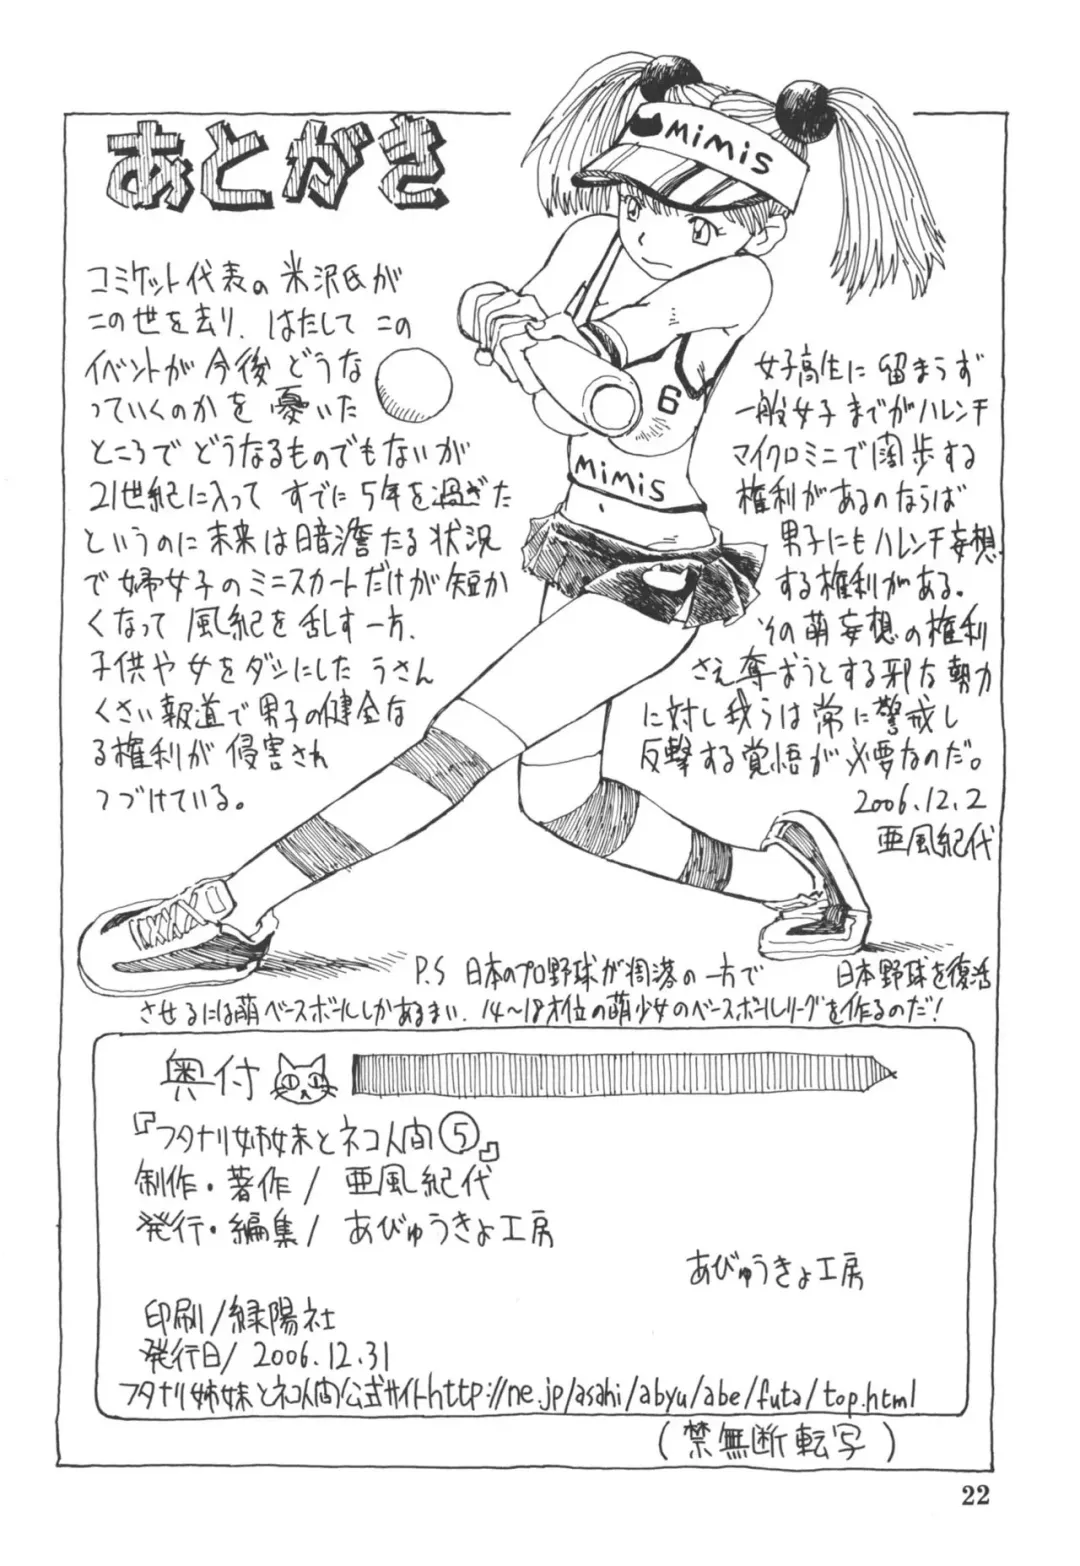 あとがき
MiMiS
6
MiMiS
コミケット代表の米沢氏が
この世を去り、はたしてこの
イベントが今後どうな
っていくのかを憂いた
ところでどうなるものでもないが
21世紀に入ってすでに5年を過ぎた
というのに未来は暗澹たる状況
で婦女子のミニスカートだけが短か
くなって風紀を乱す一方、
子供や女をダシにしたうさん
くさい報道で男子の健全な
る権利が侵害され
つづけている。
女子高生に留まらず
一般女子までがハレンチ
マイクロミニで闊歩する
権利があるのならば
男子にもハレンチ妄想
する権利がある。
その萌妄想の権利
さえ奪おうとする邪な勢力
に対し我らは常に警戒し
反撃する覚悟が必要なのだ。
2006.12.2
亜風紀代
P.S 日本のプロ野球が凋落の一方で 日本野球を復活
させるには萌ベースボールしかあるまい、14〜18才位の萌少女のベースボールリーグを作るのだ!
奥付
『フタナリ姉妹とネコ人間⑤』
制作・著作/亜風紀代
発行・編集/あびゅうきょ工房
あびゅうきょ工房
印刷/緑陽社
発行日/2006.12.31
フタナリ姉妹とネコ人間公式サイトhttp://ne.jp/asahi/abyu/abe/futa/top.html
(禁無断転写)
22